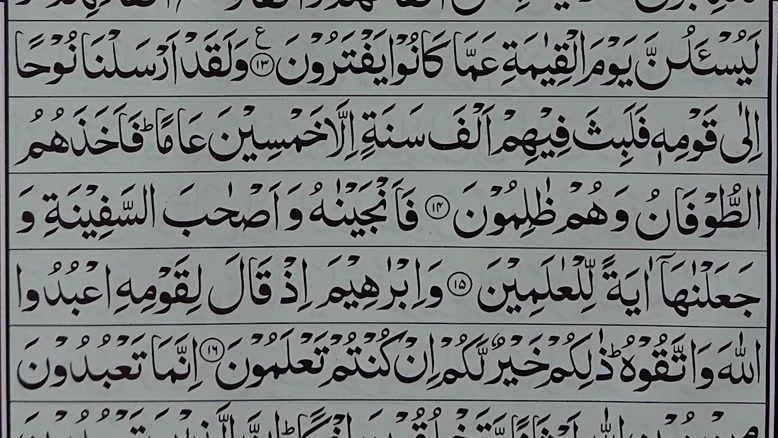 لَيُسْـَٔلُنَّ يَوْمَ الْقِيٰمَةِ عَمَّا كَانُوْا يَفْتَرُوْنَ ﴿۱۳﴾ ع وَلَقَدْ اَرْسَلْنَا نُوْحًا
اِلٰى قَوْمِهٖ فَلَبِثَ فِيْهِمْ اَلْفَ سَنَةٍ اِلَّا خَمْسِيْنَ عَامًا ؕ فَاَخَذَهُمُ
الطُّوْفَانُ وَهُمْ ظٰلِمُوْنَ ﴿۱۴﴾ فَاَنْجَيْنٰهُ وَاَصْحٰبَ السَّفِيْنَةِ وَ
جَعَلْنٰهَاۤ اٰيَةً لِّلْعٰلَمِيْنَ ﴿۱۵﴾ وَاِبْرٰهِيْمَ اِذْ قَالَ لِقَوْمِهِ اعْبُدُوا
اللّٰهَ وَاتَّقُوْهُ ؕ ذٰلِكُمْ خَيْرٌ لَّكُمْ اِنْ كُنْتُمْ تَعْلَمُوْنَ ﴿۱۶﴾ اِنَّمَا تَعْبُدُوْنَ